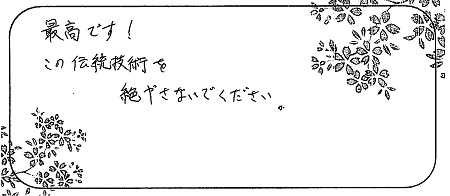 最高です!
この伝統技術を
絶やさないでください。